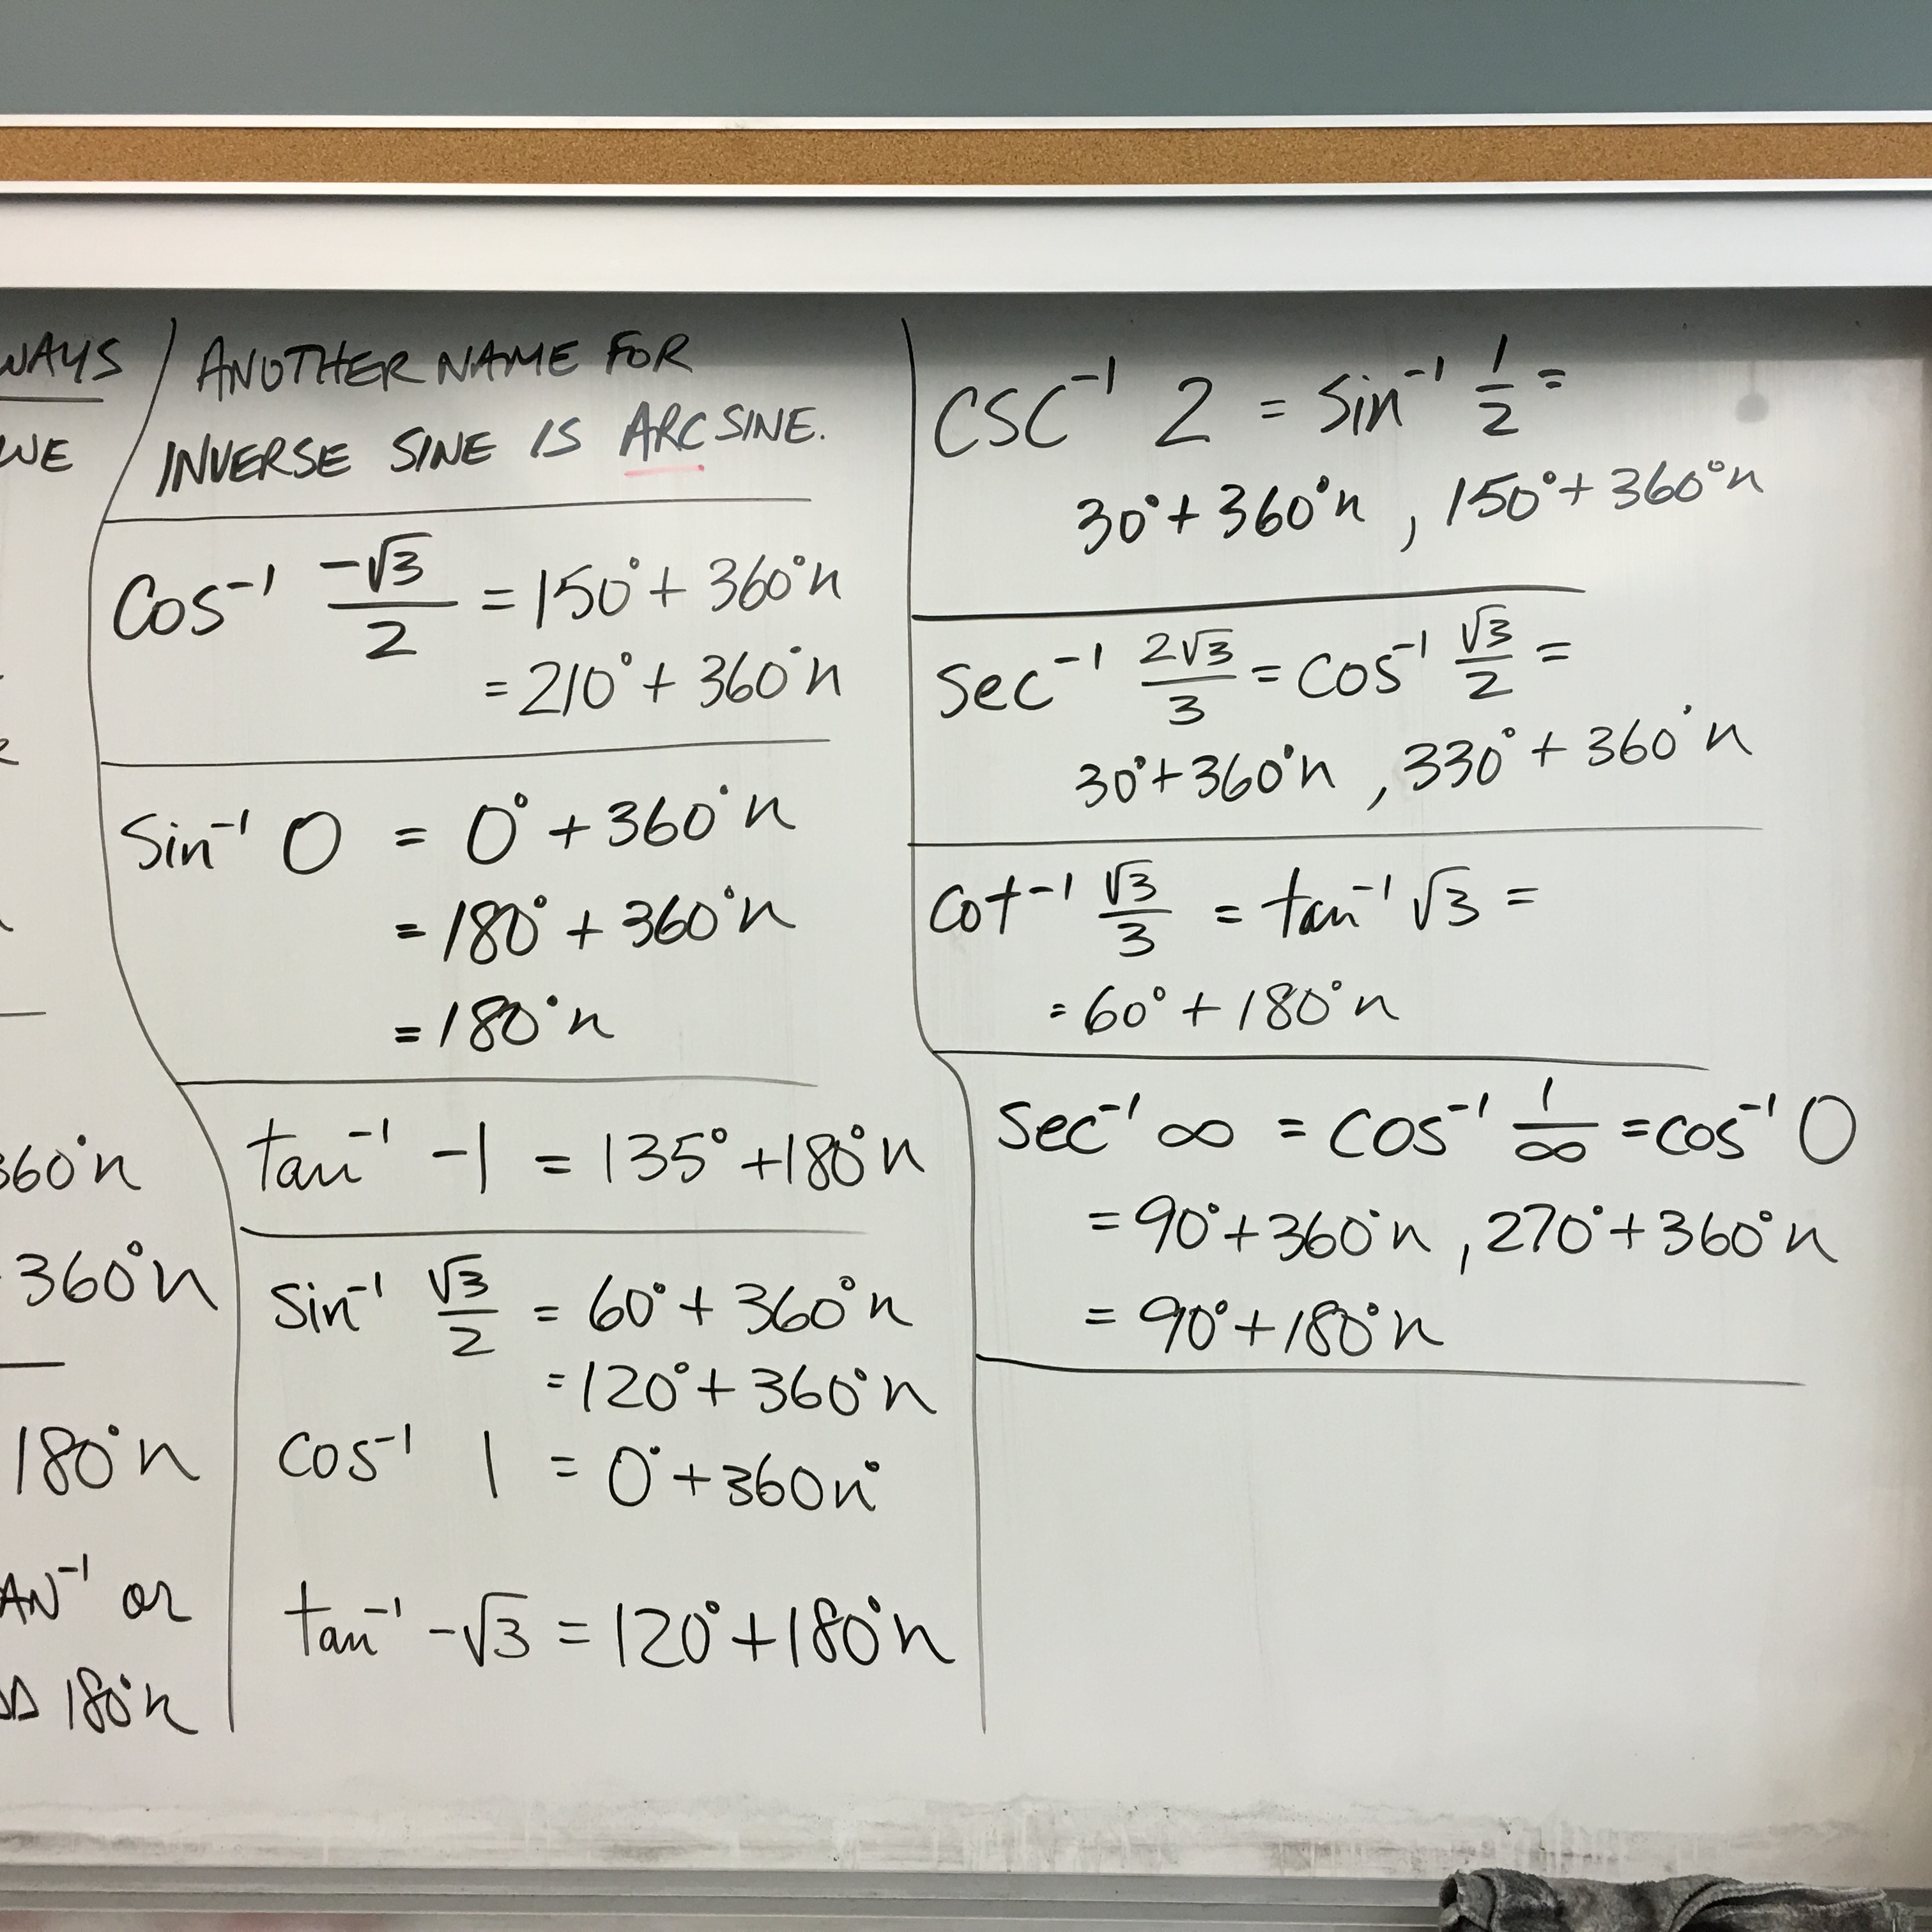 WAYS
WE
360°n
360°n
180°n
AN⁻¹ or
180°n
ANOTHER NAME FOR
INVERSE SINE IS ARCSINE.
Cos⁻¹ -√3/2 = 150° + 360°n
= 210° + 360°n
Sin⁻¹ 0 = 0° + 360°n
= 180° + 360°n
= 180°n
tan⁻¹ -1 = 135° + 180°n
Sin⁻¹ √3/2 = 60° + 360°n
= 120° + 360°n
Cos⁻¹ 1 = 0° + 360n°
tan⁻¹ -√3 = 120° + 180°n
CSC⁻¹ 2 = Sin⁻¹ 1/2 =
30° + 360°n , 150° + 360°n
Sec⁻¹ 2√3/3 = COS⁻¹ √3/2 =
30° + 360°n , 330° + 360°n
Cot⁻¹ √3/3 = tan⁻¹ √3 =
= 60° + 180°n
Sec⁻¹ ∞ = COS⁻¹ 1/∞ = cos⁻¹ 0
= 90° + 360°n , 270° + 360°n
= 90° + 180°n